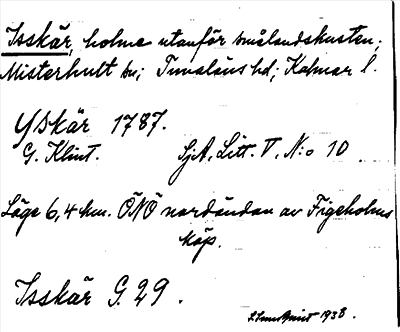 Isskär, holme utanför smålandskusten;
Misterhult sn; Tunaläns hd; Kalmar l.
Yskär 1787.
G. Klint. SjA, Litt. V, N:o 10
Läge 6,4 km. ÖNÖ nordändan av Figeholms
köp.
Isskär G. 29.
1938.